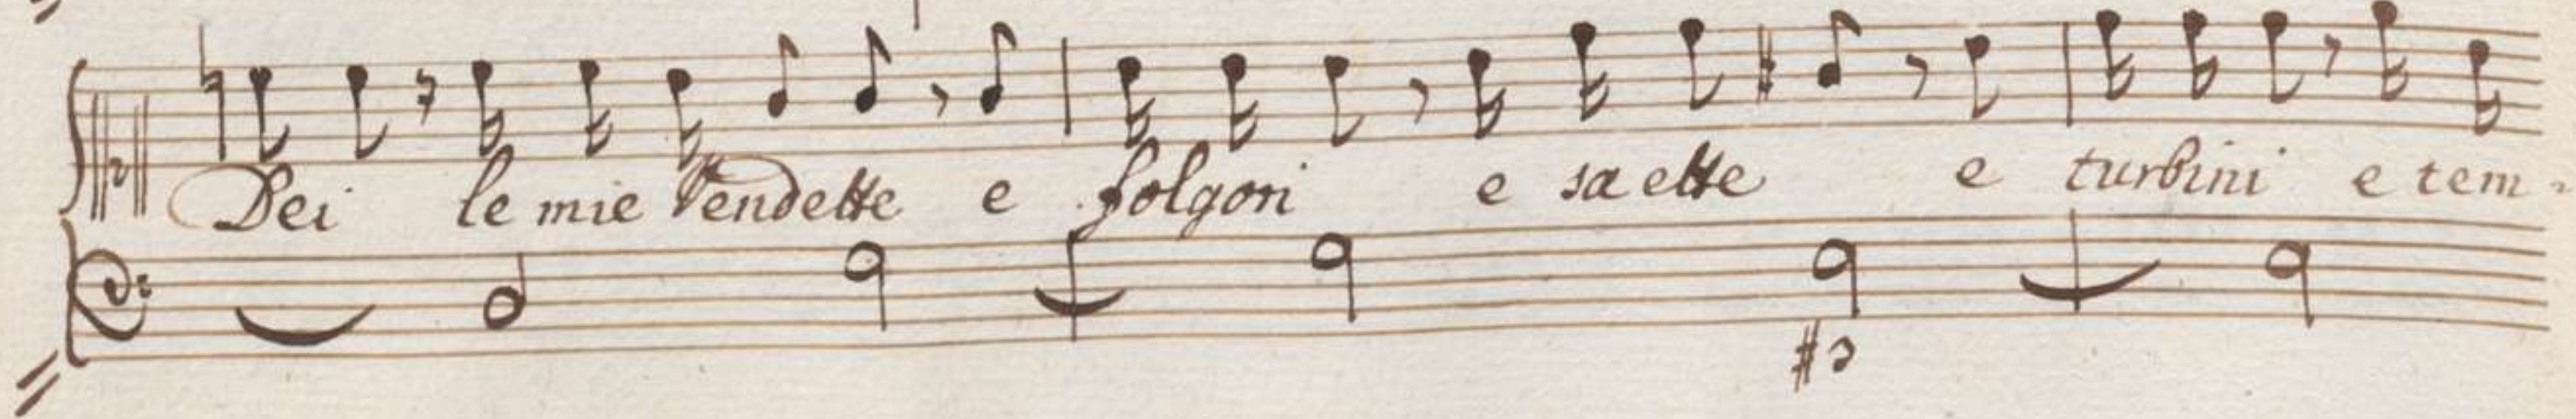 Dei le mie Vendette e folgori e saette e turbini e tem-
#3